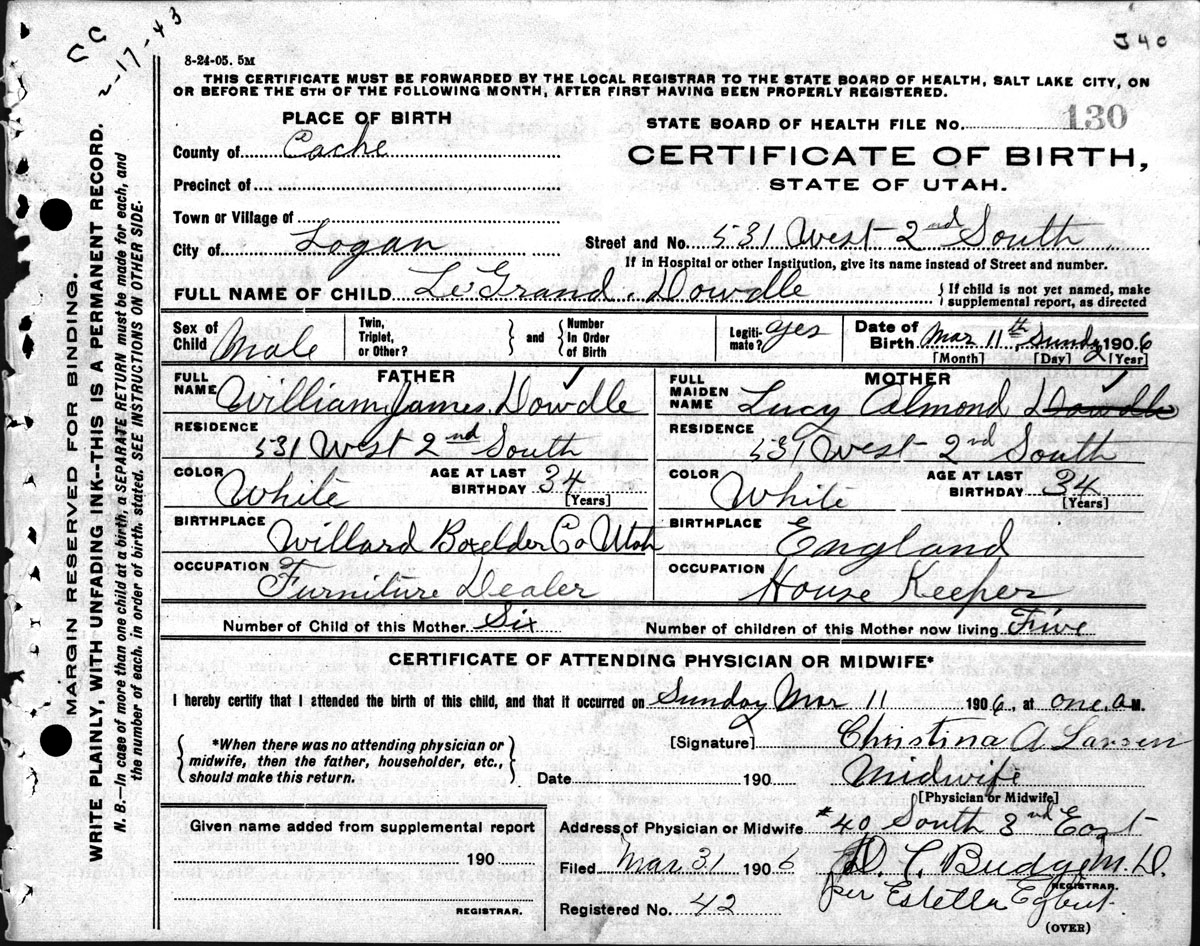 CC
2-17-43
340
8-24-05. 5M
THIS CERTIFICATE MUST BE FORWARDED BY THE LOCAL REGISTRAR TO THE STATE BOARD OF HEALTH, SALT LAKE CITY, ON
OR BEFORE THE 5TH OF THE FOLLOWING MONTH, AFTER FIRST HAVING BEEN PROPERLY REGISTERED.
MARGIN RESERVED FOR BINDING.
WRITE PLAINLY, WITH UNFADING INK--THIS IS A PERMANENT RECORD.
N. B.—In case of more than one child at a birth, a SEPARATE RETURN must be made for each, and
the number of each, in order of birth, stated. SEE INSTRUCTIONS ON OTHER SIDE.
PLACE OF BIRTH
STATE BOARD OF HEALTH FILE No. 130
County of Cache
CERTIFICATE OF BIRTH,
STATE OF UTAH.
Precinct of
Town or Village of
City of Logan
Street and No. 531 West 2nd South
If in Hospital or other Institution, give its name instead of Street and number.
FULL NAME OF CHILD Le'Grand Dowdle
{If child is not yet named, make
supplemental report, as directed
Sex of Child Male
Twin, Triplet, or Other?
} and { Number In Order of Birth
Legitimate? yes
Date of Birth Mar 11th, Sunday 1906
[Month] [Day] [Year]
FATHER
FULL NAME William James Dowdle
MOTHER
FULL MAIDEN NAME Lucy Almond Dowdle
RESIDENCE 531 West 2nd South
RESIDENCE 531 West 2nd South
COLOR White
AGE AT LAST BIRTHDAY 34 [Years]
COLOR White
AGE AT LAST BIRTHDAY 34 [Years]
BIRTHPLACE Willard Boxelder Co Utah
BIRTHPLACE England
OCCUPATION Furniture Dealer
OCCUPATION House Keeper
Number of Child of this Mother Six
Number of children of this Mother now living Five
CERTIFICATE OF ATTENDING PHYSICIAN OR MIDWIFE*
I hereby certify that I attended the birth of this child, and that it occurred on Sunday Mar 11 1906, at one, a M.
{*When there was no attending physician or
midwife, then the father, householder, etc.,
should make this return.}
[Signature] Christina A Larsen
Date 190
Midwife
[Physician or Midwife]
Given name added from supplemental report
190
REGISTRAR.
Address of Physician or Midwife #40 South 3nd East
Filed Mar 31 1906
D. C. Budge M. D.
REGISTRAR.
per Estella Egbert.
Registered No. 42
(OVER)